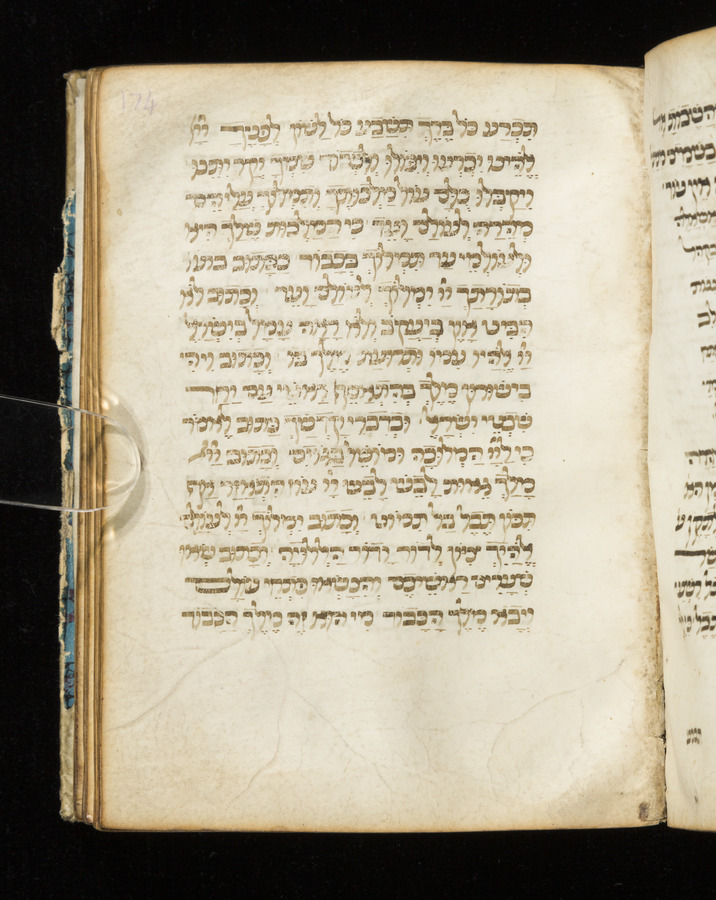 174
תכרע כל ברך תשבע כל לשון לפניך ייי
אלהינו יכרעו ויפולו יקר יתנו
ויקבלו כולם עול מלכותך ותמלוך עליהם
מהרה לעולם ועד כי המלכות שלך היא
ולעולמי עד תמלוך בכבוד ככתוב בתו
בתורתך יי ימלוך לעולם ועד וכתוב לא
הביט און ביעקב ולא ראה עמל בישראל
יי אלהיו עמו ותרועת מלך בו וכתוב ויהי
בישורון מלך בהתאסף ראשי עם יחד
שבטי ישראל ובדברי קדשך כתוב לאמר
כי ליי המלוכה ומושל בגוים וכתוב יי
מלך גאות לבש לבש יי עוז התאזר אף
תכון תבל בל תמוט וכתוב ימלוך יי לעולם
אלהיך ציון לדור ודור הללויה וכתוב שאו
שערים ראשיכם והנשאו פתחי עולם
ויבא מלך הכבוד מי הוא זה מלך הכבוד